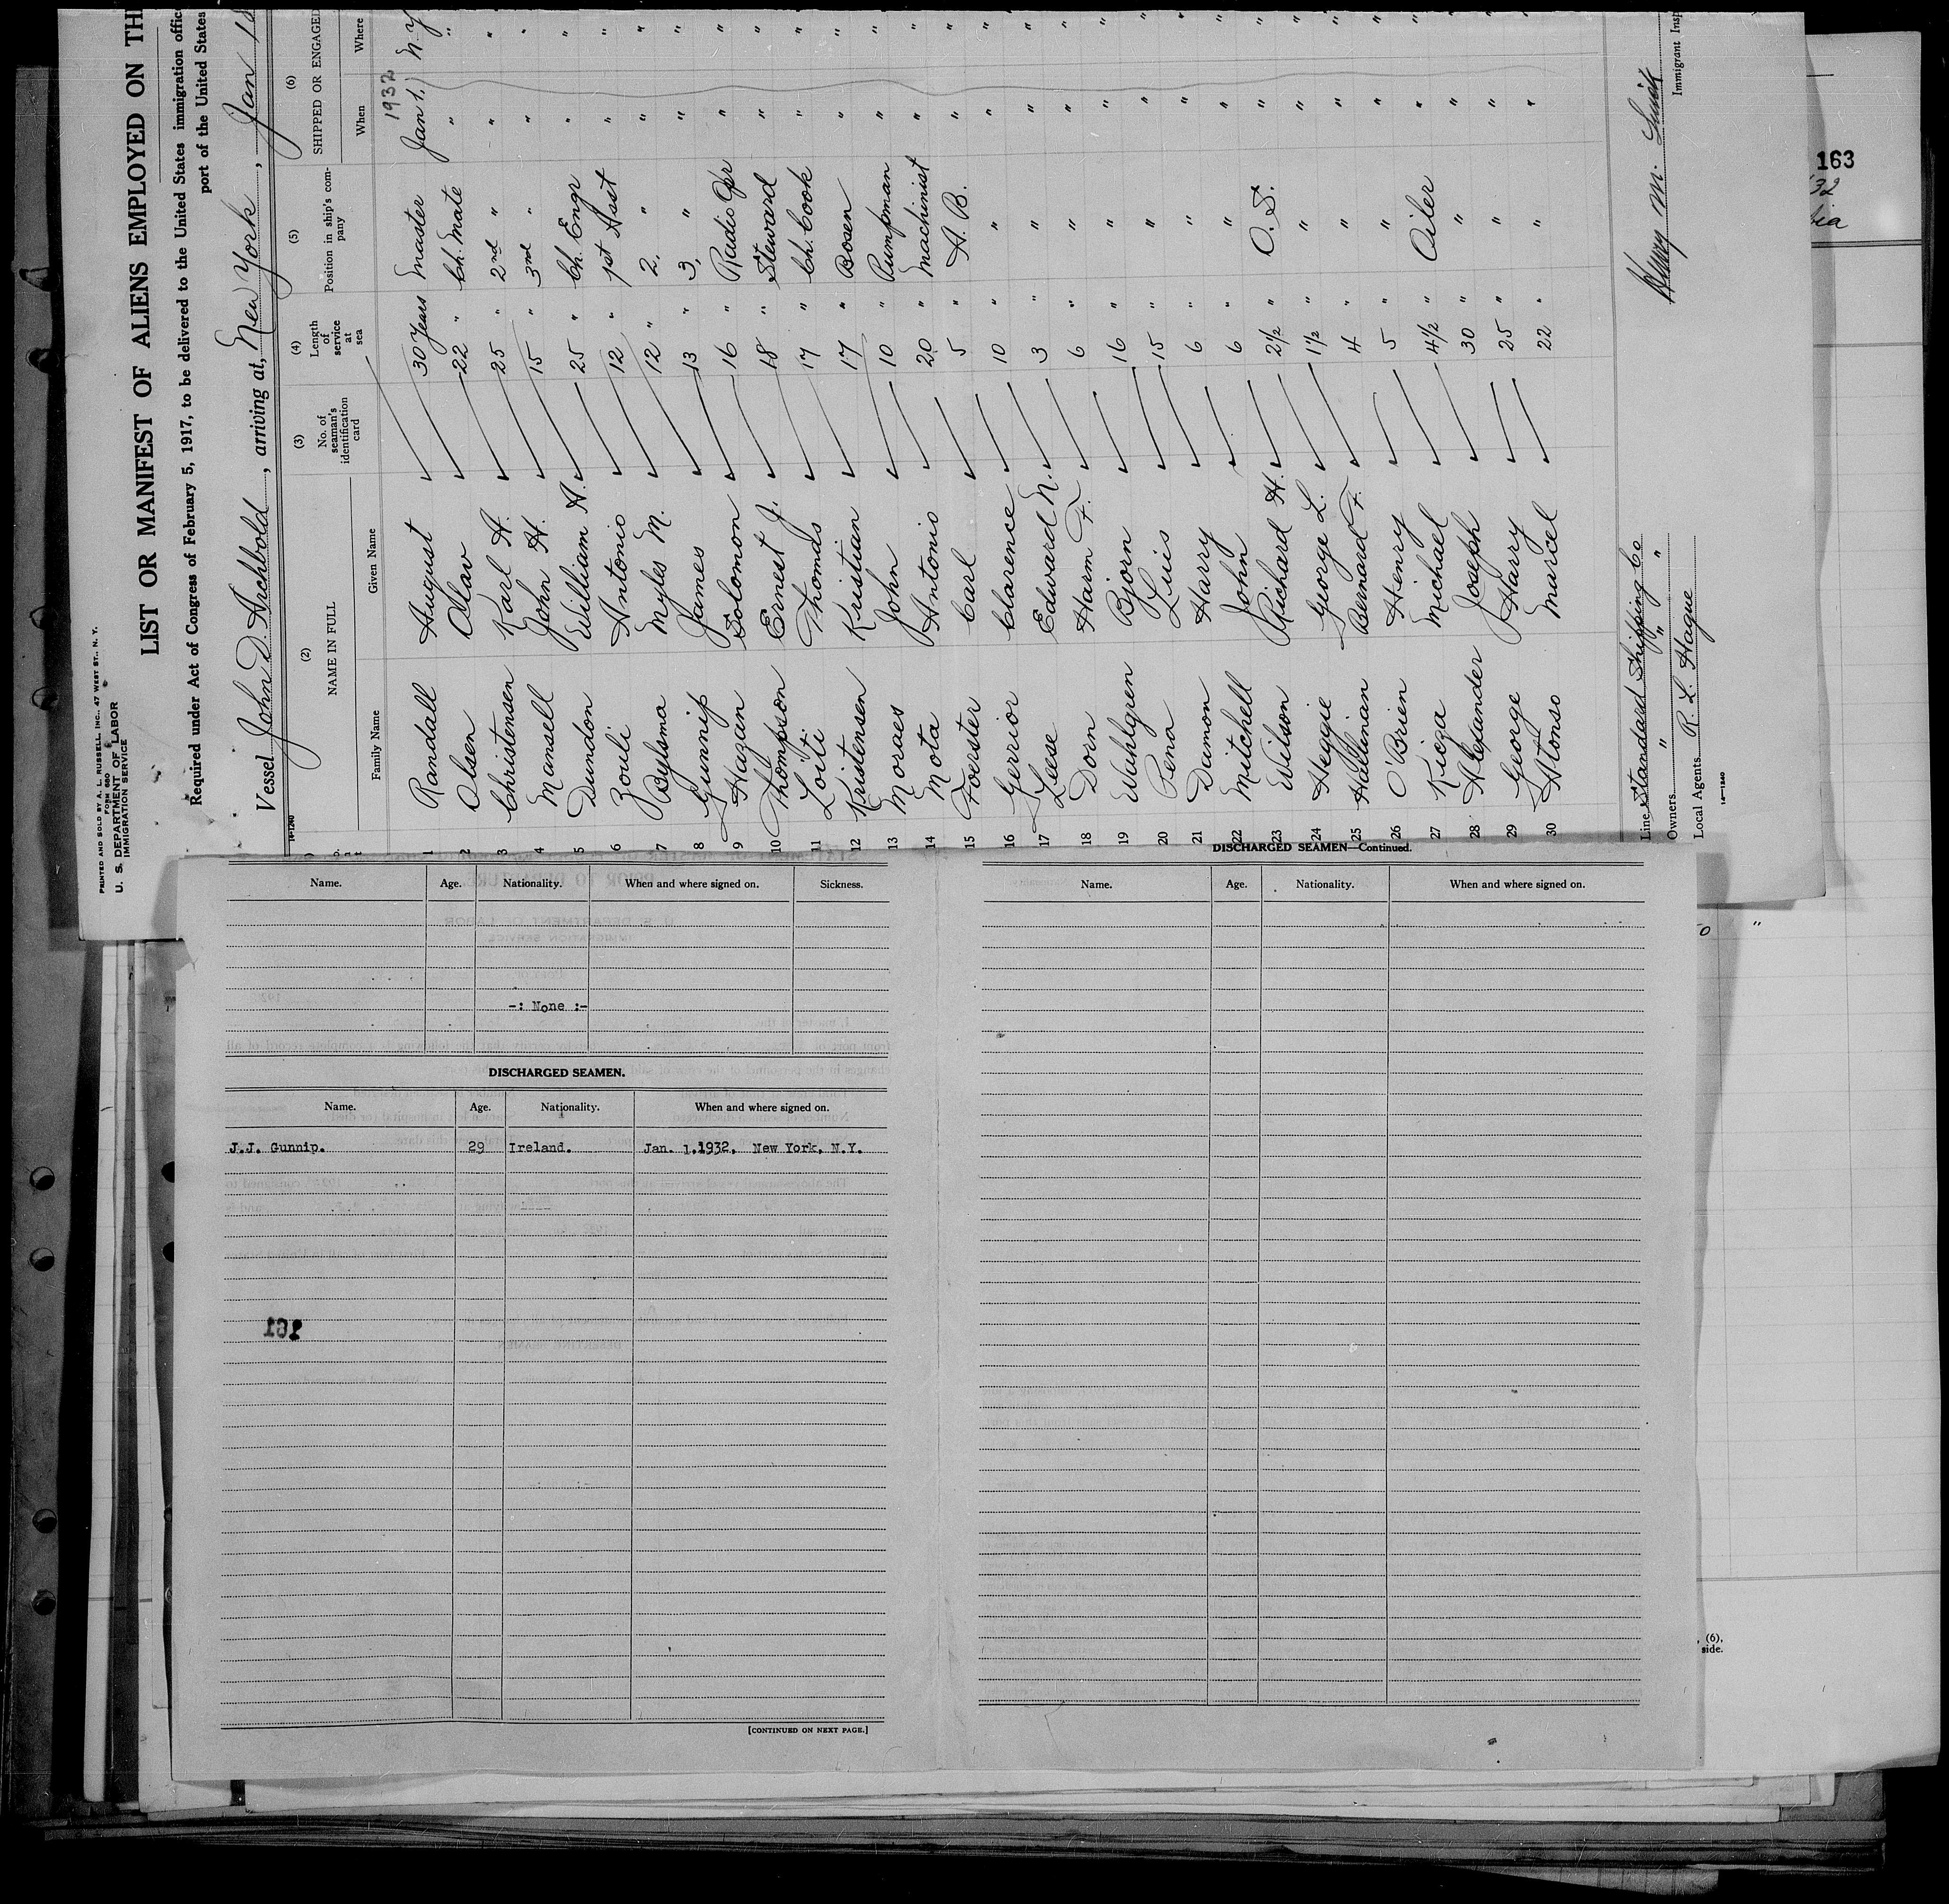 PRINTED AND SOLD BY A. L. RUSSELL, INC., 47 WEST ST., N. Y.
FORM 680
U. S. DEPARTMENT OF LABOR
IMMIGRATION SERVICE
LIST OR MANIFEST OF ALIENS EMPLOYED ON TH
Required under Act of Congress of February 5, 1917, to be delivered to the United States immigration offic
port of the United States
Vessel John D. Archbold, arriving at, New York, Jan 18
14-1240
(2) (3) (4) (5) (6)
NAME IN FULL No. of seaman's identification card Length of service at sea Position in ship's company SHIPPED OR ENGAGED
Family Name Given Name When Where
1932
1 Randall August 30 Years Master Jan 1. N.Y
2 Olsen Olav 22 " Ch. Mate " "
3 Christensen Karl A. 25 " 2nd " " "
4 Mansell John H. 15 " 3rd " " "
5 Dundon William A. 25 " Ch. Engr " "
6 Zouli Antonio 12 " 1st Asst " "
7 Bylsma Myles M. 12 " 2. " " "
8 Gunnip James 13 " 3. " " "
9 Hazan Solomon 16 " Radio Opr " "
10 Thompson Ernest J. 18 " Steward " "
11 Loiti Thomas 17 " Ch. Cook " "
12 Kristensen Kristian 17 " Bosen " "
13 Moraes John 10 " Pumpman " "
14 Mota Antonio 20 " Machinist " "
15 Foerster Carl 5 " A. B. " "
16 Gerrior Clarence 10 " " " "
17 Leese Edward N. 3 " " " "
18 Dorn Harm F. 6 " " " "
19 Wahlgren Bjorn 16 " " " "
20 Pena Luis 15 " " " "
21 Damon Harry 6 " " " "
22 Mitchell John 6 " " " "
23 Wilson Richard H. 2½ " O. S. " "
24 Heggie George L. 1½ " " " "
25 Hallinan Bernard F. 4 " " " "
26 O'Brien Henry 5 " " " "
27 Kicza Michael 4½ " Oiler " "
28 Alexander Joseph 30 " " " "
29 George Harry 25 " " " "
30 Alonso Marcel 22 " " " "
Line Standard Shipping Co
Owners " " "
Local Agents R. L. Hague
14-1240
Immigrant Insp
163
32
(6),
side.
Name. Age. Nationality. When and where signed on. Sickness.
-: None :-
DISCHARGED SEAMEN.
Name. Age. Nationality. When and where signed on.
J.J. Gunnip. 29 Ireland. Jan. 1,1932, New York, N.Y.
161
[CONTINUED ON NEXT PAGE.]
DISCHARGED SEAMEN—Continued.
Name. Age. Nationality. When and where signed on.